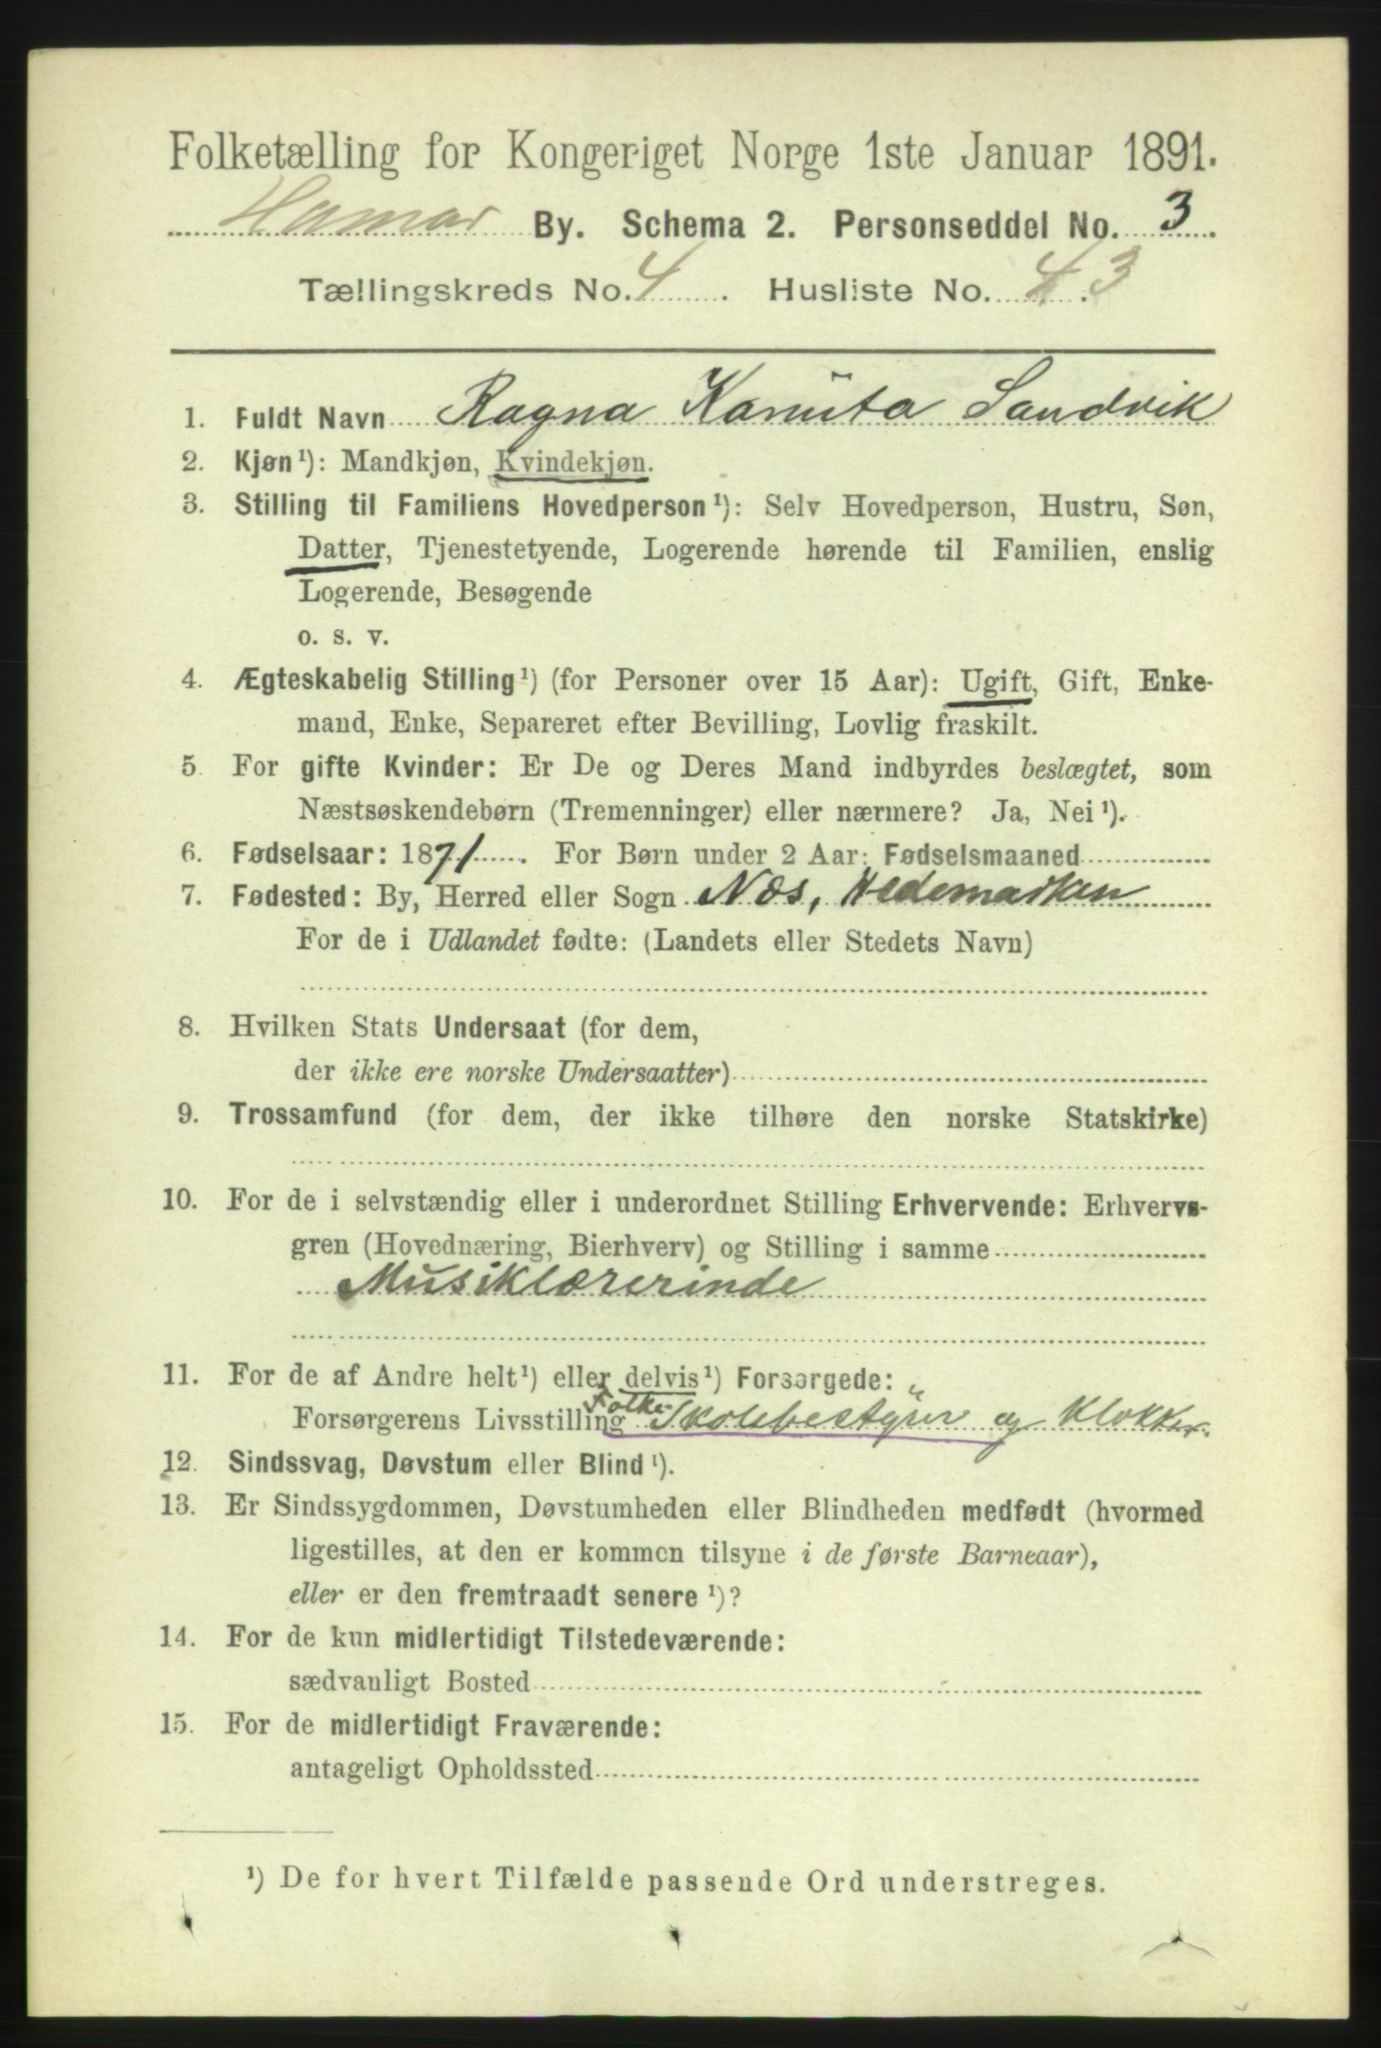 Folketælling for Kongeriget Norge 1ste Januar 1891.
Hamar By. Schema 2. Personseddel No. 3.
Tællingskreds No. 4. Husliste No. 43.
1. Fuldt Navn Ragna Kanuta Sandvik
2. Kjøn ¹): Mandkjøn, Kvindekjøn.
3. Stilling til Familiens Hovedperson ¹): Selv Hovedperson, Hustru, Søn,
Datter, Tjenestetyende, Logerende hørende til Familien, enslig
Logerende, Besøgende
o. s. v.
4. Ægteskabelig Stilling ¹) (for Personer over 15 Aar): Ugift, Gift, Enke-
mand, Enke, Separeret efter Bevilling, Lovlig fraskilt.
5. For gifte Kvinder: Er De og Deres Mand indbyrdes beslægtet, som
Næstsøskendebørn (Tremenninger) eller nærmere? Ja, Nei ¹).
6. Fødselsaar: 1871. For Børn under 2 Aar: Fødselsmaaned
7. Fødested: By, Herred eller Sogn Næs, Hedemarken
For de i Udlandet fødte: (Landets eller Stedets Navn)
8. Hvilken Stats Undersaat (for dem,
der ikke ere norske Undersaatter)
9. Trossamfund (for dem, der ikke tilhøre den norske Statskirke)
10. For de i selvstændig eller i underordnet Stilling Erhvervende: Erhvervs-
gren (Hovednæring, Bierhverv) og Stilling i samme
Musiklærerinde
11. For de af Andre helt ¹) eller delvis ¹) Forsørgede:
Forsørgerens Livsstilling Folke Skolebestyrer og Klokker.
12. Sindssvag, Døvstum eller Blind ¹).
13. Er Sindssygdommen, Døvstumheden eller Blindheden medfødt (hvormed
ligestilles, at den er kommen tilsyne i de første Barneaar),
eller er den fremtraadt senere ¹)?
14. For de kun midlertidigt Tilstedeværende:
sædvanligt Bosted
15. For de midlertidigt Fraværende:
antageligt Opholdssted
¹) De for hvert Tilfælde passende Ord understreges.